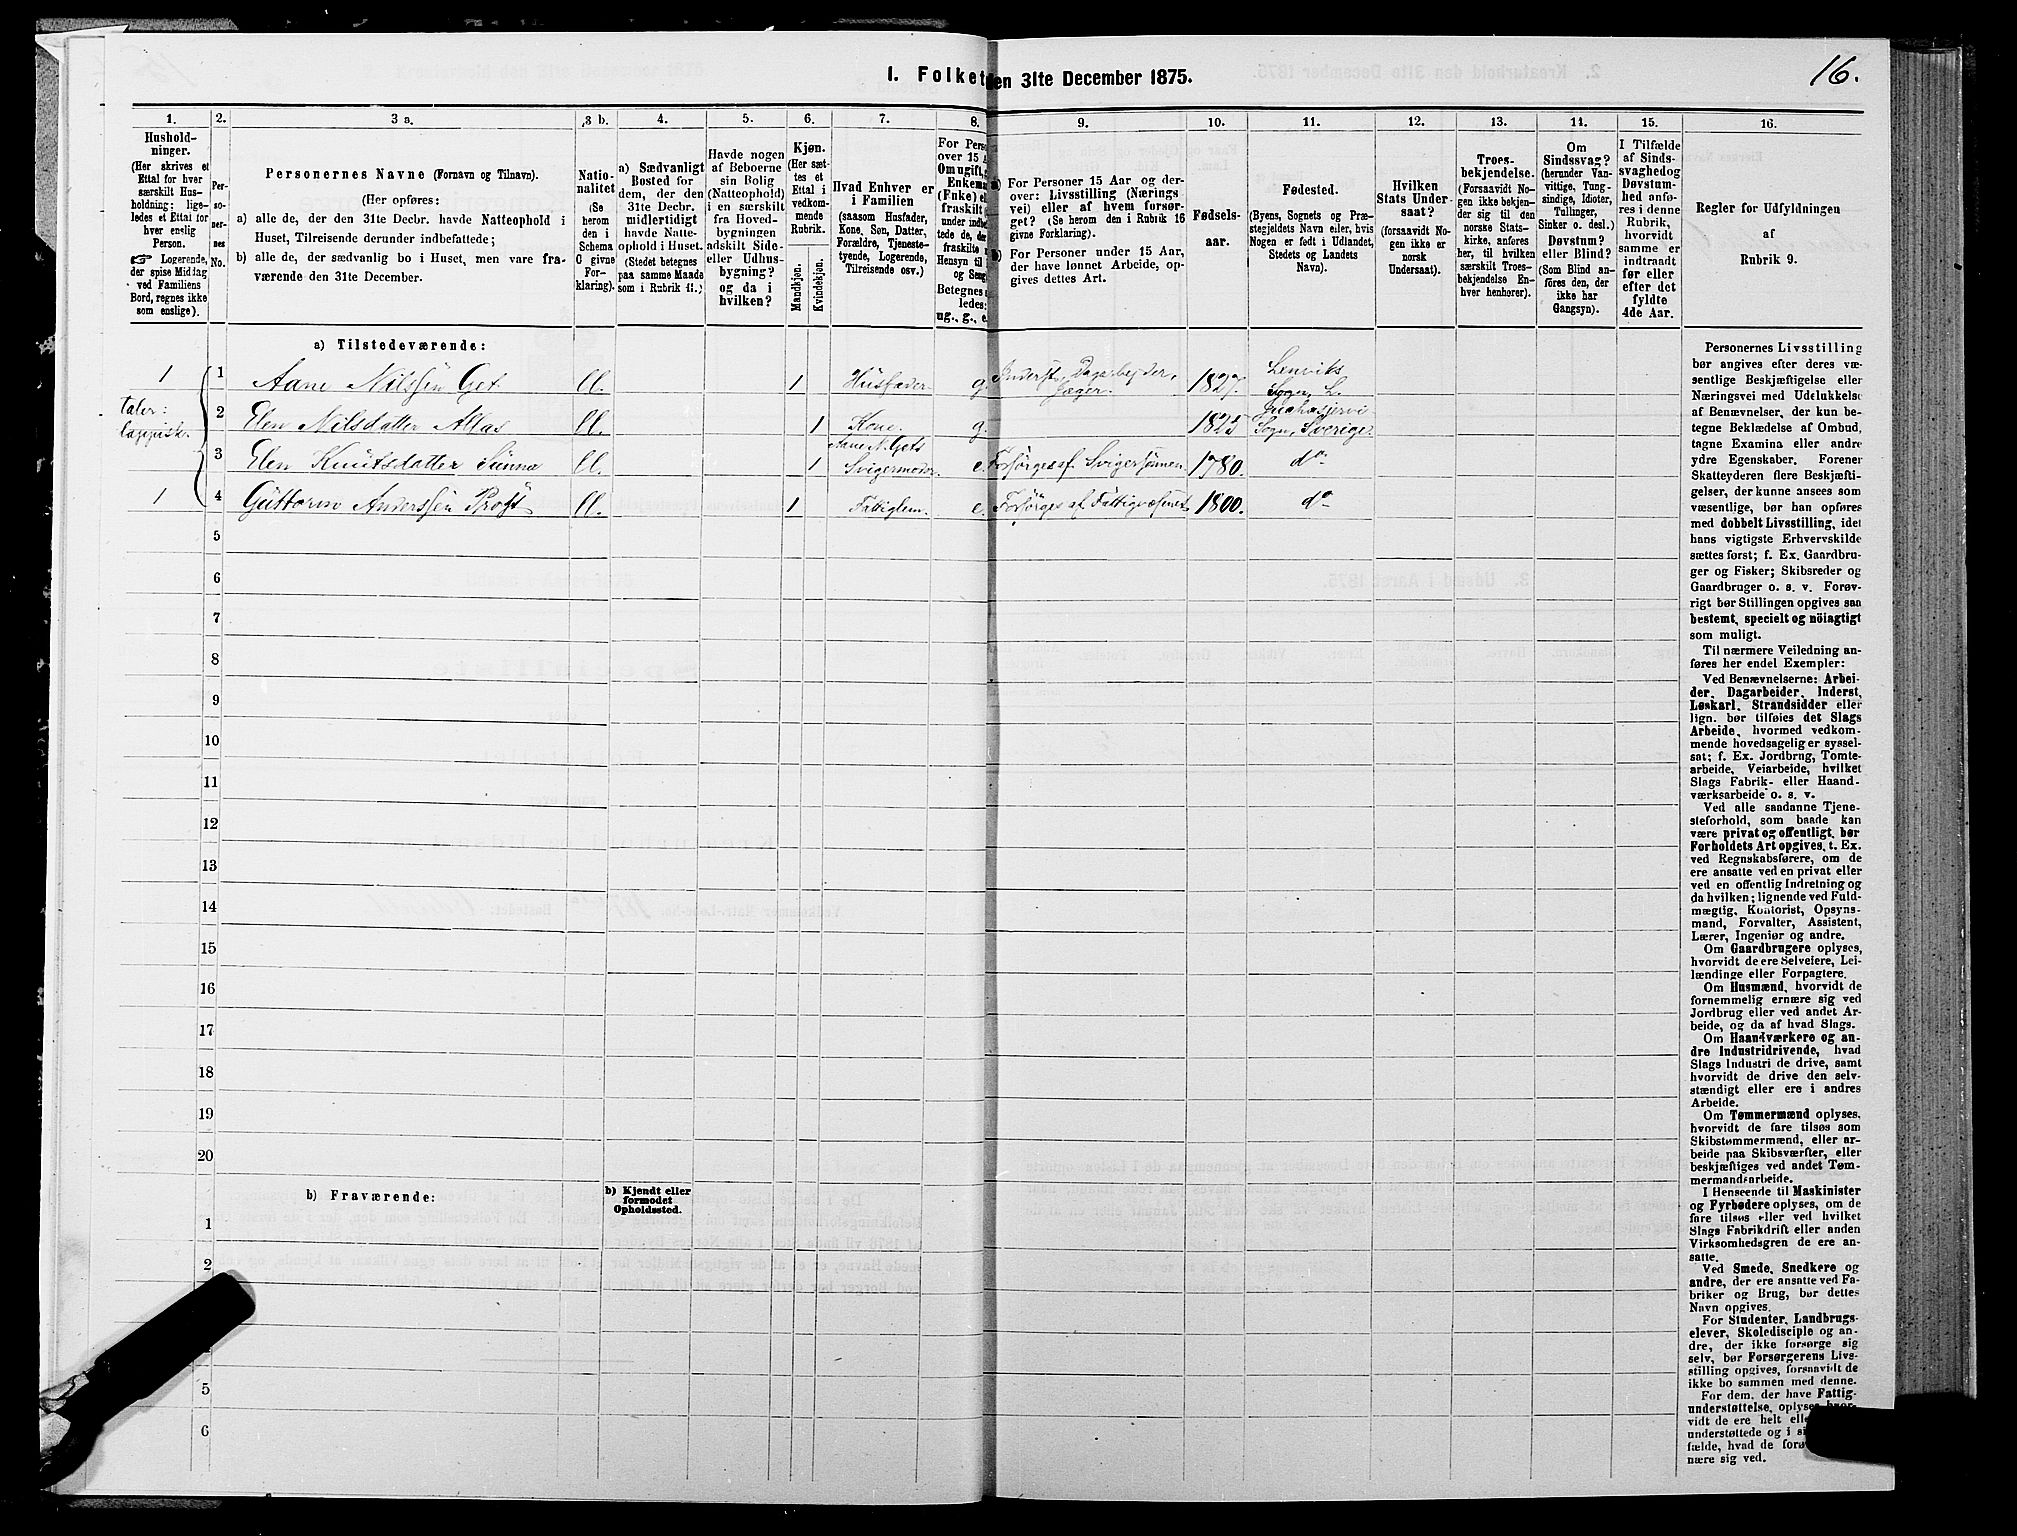 16.
I. Folket
en 31te December 1875.
1.
Hushold-
ninger.
(Her skrives et
Ettal for hver
særskilt Hus-
holdning; lige-
ledes et Ettal for
hver enslig
Person.
Logerende,
der spise Middag
ved Familiens
Bord, regnes ikke
som enslige).
2.
Per-
so-
ner-
nes
No.
3 a.
Personernes Navne (Fornavn og Tilnavn).
(Her opføres:
a) alle de, der den 31te Decbr. havde Natteophold i
Huset, Tilreisende derunder indbefattede;
b) alle de, der sædvanlig bo i Huset, men vare fra-
værende den 31te December.
3 b.
Natio-
nalitet
(Se
herom
den i
Schema
C givne
For-
klaring).
4.
a) Sædvanligt
Bosted for
dem, der den
31te Decbr.
midlertidigt
havde Natte-
ophold i Huset.
(Stedet betegnes
paa samme Maade
som i Rubrik 11.)
5.
Havde nogen
af Beboerne
sin Bolig
(Natteophold)
i en særskilt
fra Hoved-
bygningen
adskilt Side-
eller Udhus-
bygning?
og da i
hvilken?
6.
Kjøn.
(Her sæt-
tes et
Ettal i
vedkom-
mende
Rubrik.
Mandkjøn.
Kvindekjøn.
7.
Hvad Enhver er
i Familien
(saasom Husfader,
Kone, Søn, Datter,
Forældre, Tjeneste-
tyende, Logerende,
Tilreisende osv.)
8.
For Perso
over 15 A
Om ugift,
Enkema
(Enke) el
fraskilt
under indbe
tede de, der
fraskilte
Hensyn til
og Seng
Betegnes
ledes:
ug., g., e.
9.
For Personer 15 Aar og der-
over: Livsstilling (Nærings
vei) eller af hvem forsør-
get? (Se herom den i Rubrik 16
givne Forklaring).
For Personer under 15 Aar,
der have lønnet Arbeide, op-
gives dettes Art.
10.
Fødsels-
aar.
11.
Fødested.
(Byens, Sognets og Præ-
stegjeldets Navn eller, hvis
Nogen er født i Udlandet,
Stedets og Landets
Navn).
12.
Hvilken
Stats Under-
saat?
(forsaavidt No-
gen ikke er
norsk
Undersaat).
13.
Troes-
bekjendelse.
(Forsaavidt No-
gen ikke bekjen-
der sig til den
norske Stats-
kirke, anføres
her, til hvilken
særskilt Troes-
bekjendelse En-
hver henhører).
14.
Om
Sindssvag?
(herunder Van-
vittige, Tung-
sindige, Idioter,
Tullinger,
Sinker o. desl.)
Døvstum?
eller Blind?
(Som Blind an-
føres den, der
ikke har
Gangsyn).
15.
I Tilfælde
af Sinds-
svaghed og
Døvstum-
hed anfø-
res i denne
Rubrik,
hvorvidt
samme er
indtraadt
før eller
efter det
fyldte
4de Aar.
16.
Regler for Udfyldningen
af
Rubrik 9.
a) Tilstedeværende:
1 1 Aane Nilssen Get ll. 1 Husfader g. Inderst, Dagarbejder, Jæger. 1827. Lenviks Sogn, L.
taler:
lappisk.
2 Elen Nilsdatter Allas ll. 1 Kone. g. 1825 Sogn, Sverige.
3 Elen Knutsdatter Sunna ll. 1 Aane N. Gets Svigermoder e. Forsørges af Svigersønnen. 1780. do
1 4 Guttorm Anderssen Prost ll. 1 Fattiglem. e. Forsørges af Fattigvæsenet 1800. do
5
6
7
8
9
10
11
12
13
14
15
16
17
18
19
20
b) Fraværende:
b) Kjendt eller
formodet
Opholdssted.
1
2
5
6
Personernes Livsstilling
bør angives efter deres væ-
sentlige Beskjæftigelse eller
Næringsvei med Udelukkelse
af Benævnelser, der kun be-
tegne Beklædelse af Ombud,
tagne Examina eller andre
ydre Egenskaber. Forener
Skatteyderen flere Beskjæfti-
gelser, der kunne ansees som
væsentlige, bør han opføres
med dobbelt Livsstilling, idet
hans vigtigste Erhvervskilde
sættes først; f. Ex. Gaardbru-
ger og Fisker; Skibsreder og
Gaardbruger o. s. v. Forøv-
rigt bør Stillingen opgives saa
bestemt, specielt og nöiagtigt
som muligt.
Til nærmere Veiledning an-
føres her endel Exempler:
Ved Benævnelserne: Arbei-
der, Dagarbeider, Inderst,
Løskarl, Strandsidder eller
lign. bør tilføies det Slags
Arbeide, hvormed vedkom-
mende hovedsagelig er syssel-
sat; f. Ex. Jordbrug, Tomte-
arbeide, Veiarbeide, hvilket
Slags Fabrik- eller Haand-
værksarbeide o. s. v.
Ved alle saadanne Tjene-
steforhold, som baade kan
være privat og offentligt, bør
Forholdets Art opgives, t. Ex.
ved Regnskabsførere, om de
ere ansatte ved en privat eller
ved en offentlig Indretning og
da hvilken; lignende ved Fuld-
mægtig, Kontorist, Opsyns-
mand, Forvalter, Assistent,
Lærer, Ingeniør og andre.
Om Gaardbrugere oplyses,
hvorvidt de ere Selveiere, Lei-
lændinge eller Forpagtere.
Om Husmænd, hvorvidt de
fornemmelig ernære sig ved
Jordbrug eller ved andet Ar-
beide, og da af hvad Slags.
Om Haandværkere og an-
dre Industridrivende, hvad
Slags Industri de drive, samt
hvorvidt de drive den selv-
stændigt eller ere i andres
Arbeide.
Om Tømmermænd oplyses,
hvorvidt de fare tilsøs som
Skibstømmermænd, eller ar-
beide paa Skibsværfter, eller
beskjæftiges ved andet Tøm-
mermandsarbeide.
I Henseende til Maskinister
og Fyrbødere oplyses, om de
fare tilsøs eller ved hvilket
Slags Fabrikdrift eller anden
Virksomhedsgren de ere an-
satte.
Ved Smede, Snedkere og
andre, der ere ansatte ved Fa-
briker og Brug, bør dettes
Navn opgives.
For Studenter, Landbrugs-
elever, Skoledisciple og an-
dre, der ikke forsørge sig
selv, bør Forsørgerens Livs-
stilling opgives, forsaavidt de
ikke bo sammen med denne.
For dem, der have Fattig-
understøttelse, oplyses hvor-
vidt de ere helt elle
understøttede og i si
fælde, hvad de forø
nære sig ved.